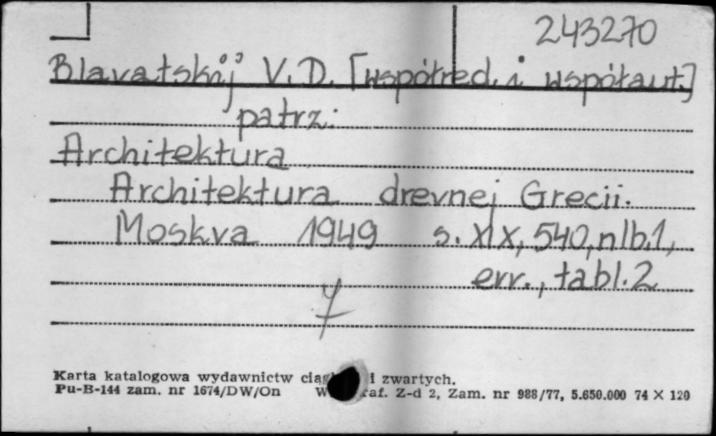 243270
Blavatskij V.D. [współred. i współaut.]
patrz:
Architektura
Architektura drevnej Grecii.
Moskva 1949 s. XIX, 540, nlb.1,
err., tabl. 2
Karta katalogowa wydawnictw i zwartych.
Pu-B-144 zam. nr 1674/DW/On Z-d 2, Zam. nr 988/77, 5.650.000 74 X 120